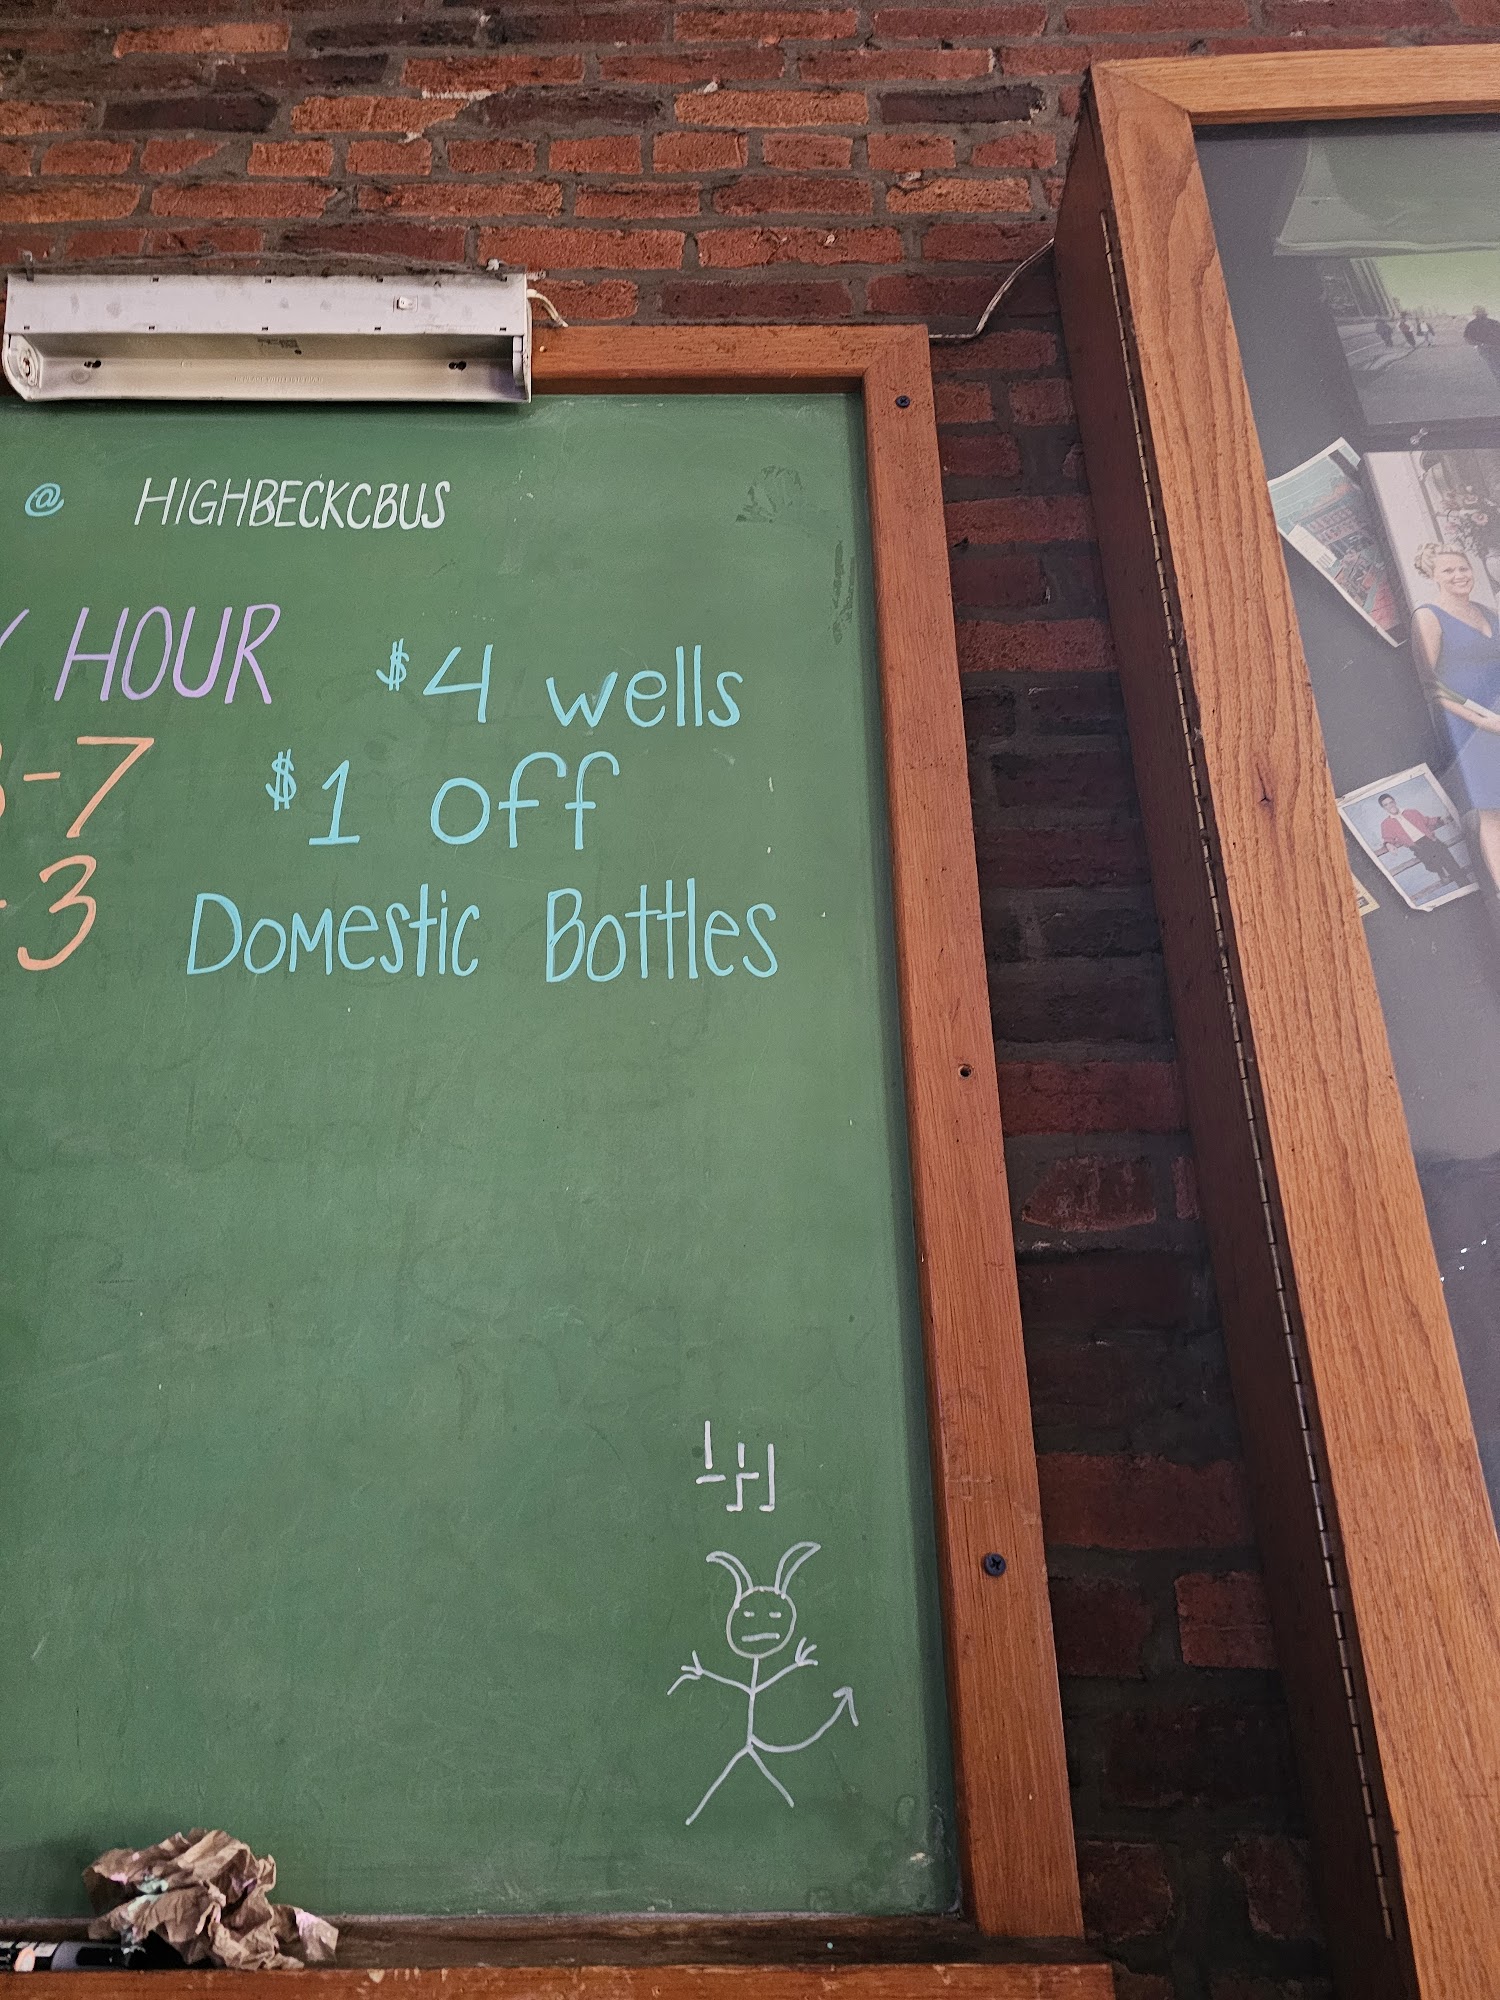 @ HIGHBECKCBUS
HOUR $4 wells
-7 $1 off
3 Domestic Bottles